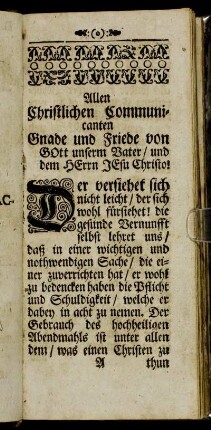 :(o):
Allen
Christlichen Communi-
canten
Gnade und Friede von
GOtt unserm Vater/ und
dem HErrn JEsu Christo!
Der versiehet sich
nicht leicht/ der sich
wohl fürsiehet! die
gesunde Vernunfft
selbst lehret uns/
daß in einer wichtigen und
nothwendigen Sache/ die ei-
ner zuverrichten hat/ er wohl
zu bedencken haben die Pflicht
und Schuldigkeit/ welche er
dabey in acht zu nemen. Der
Gebrauch des hochheiligen
Abendmahls ist unter allen
dem/ was einen Christen zu
A thun
AC-